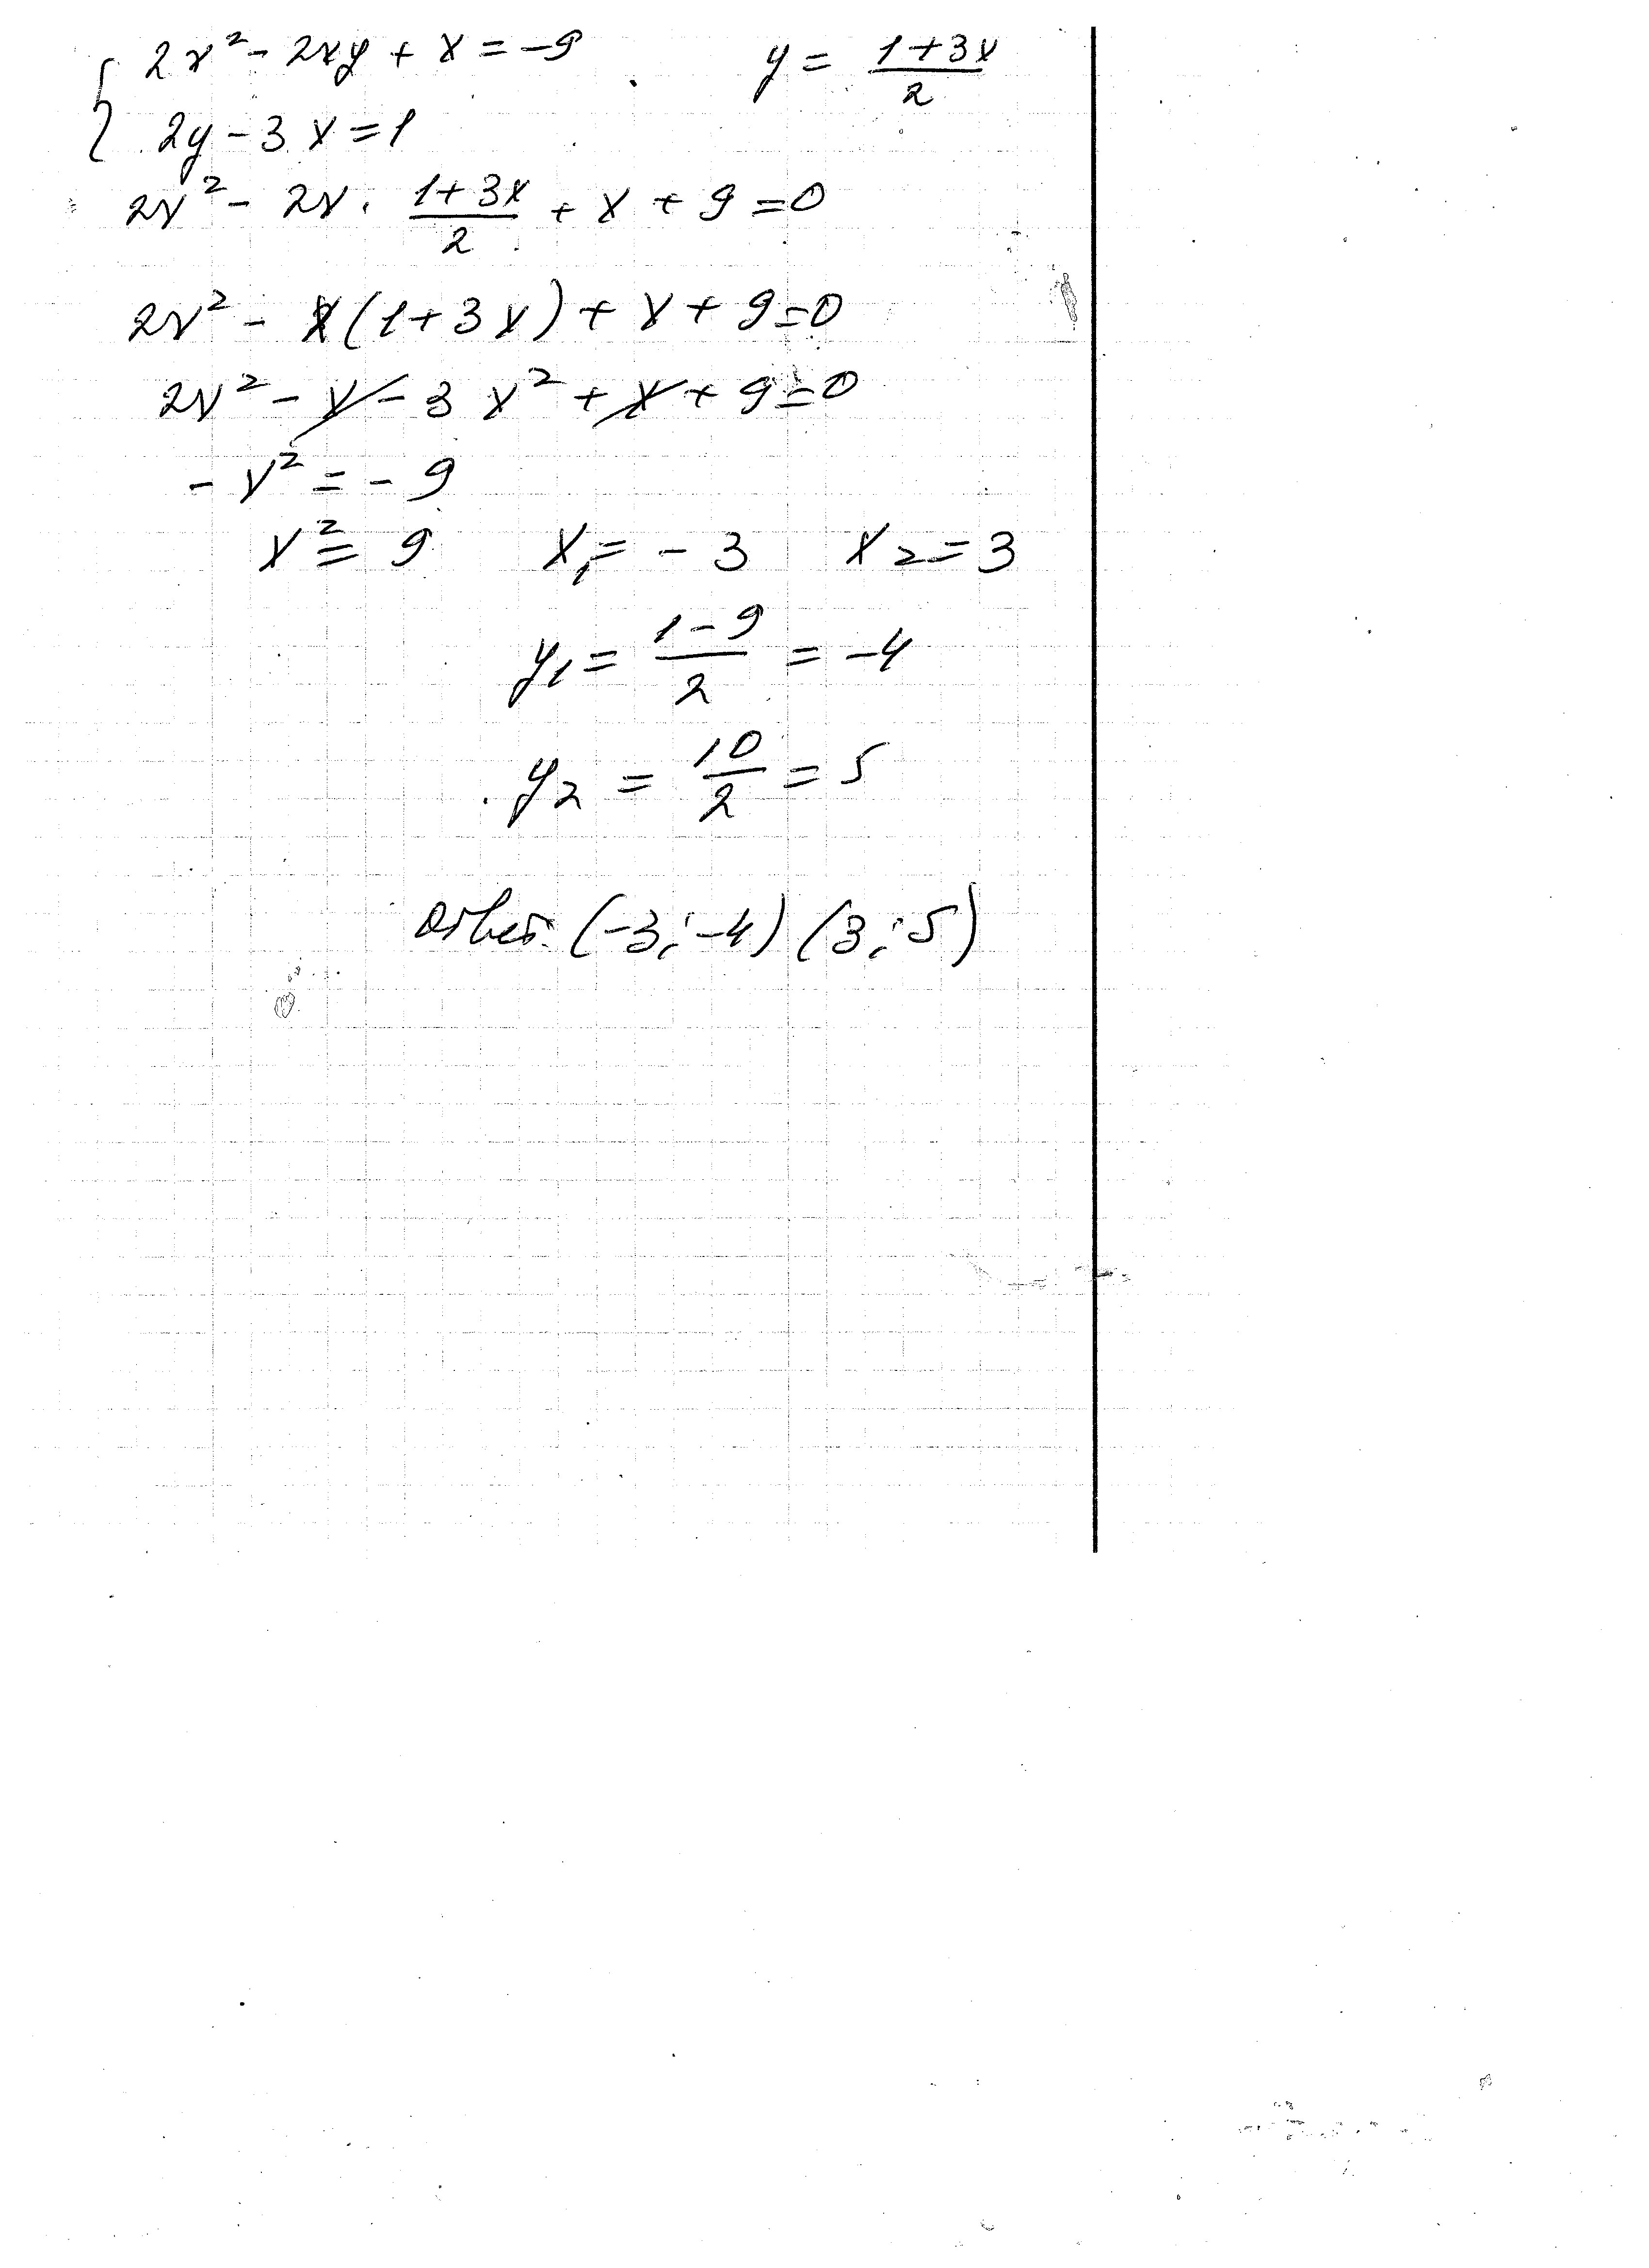 { 2x² - 2xy + x = -9    y = (1+3x)/2
2y - 3x = 1
2x² - 2x · (1+3x)/2 + x + 9 = 0
2x² - x(1+3x) + x + 9 = 0
2x² - x - 3x² + x + 9 = 0
-x² = -9
x² = 9    x₁ = -3    x₂ = 3
y₁ = (1-9)/2 = -4
y₂ = 10/2 = 5
Ответ: (-3; -4) (3; 5)